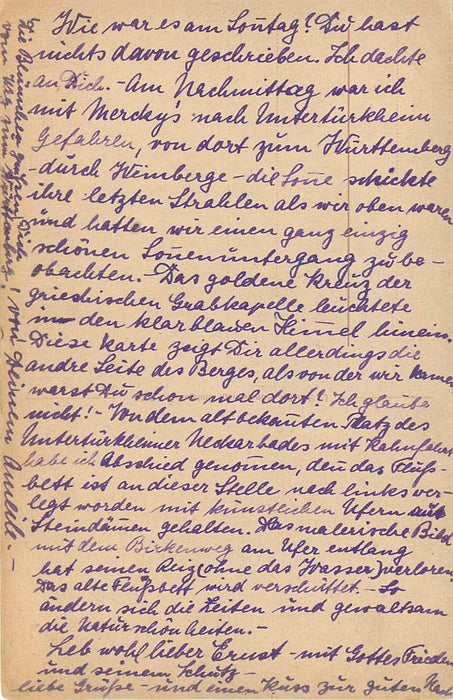 Wie war es am Son̄tag? Du hast
nichts davon geschrieben. Ich dachte
an Dich. – Am Nachmittag war ich
mit Mercky's nach Untertürkheim
gefahren, von dort zum Württemberg
– durch Weinberge – die Son̄e schickte
ihre letzten Strahlen als wir oben waren
und hatten wir einen ganz einzig
schönen Son̄enuntergang zu be-
obachten. – Das goldene Kreuz der
griechischen Grabkapelle leuchtete
in den klarblauen Him̄el hinein.
Diese Karte zeigt Dir allerdings die
andre Seite des Berges, als von der wir kamen
warst Du schon mal dort? Ich glaube
nicht! – Von dem altbekan̄ten Platz des
Untertürkheimer Neckarbades mit Kahnfahrt
habe ich Abschied genom̄en, den̄ das Fluß-
bett ist an dieser Stelle nach links ver-
legt worden mit künstlichen Ufern aus
Steindäm̄en gehalten. Das malerische Bild
mit dem Birkenweg am Ufer entlang
hat seinen Reiz (ohne das Wasser) verloren.
Das alte Flußbett wird verschüttet. – So
ändern sich die Zeiten und gewaltsam
die Naturschönheiten. –
Leb wohl lieber Ernst – mit Gottes Frieden
und seinem Schutz –
liebe Grüße – und einen Kuss zur guten
Die Blümchen grüßen Dich
vom Weg zum Württemberg!
von Deinem Amele. –